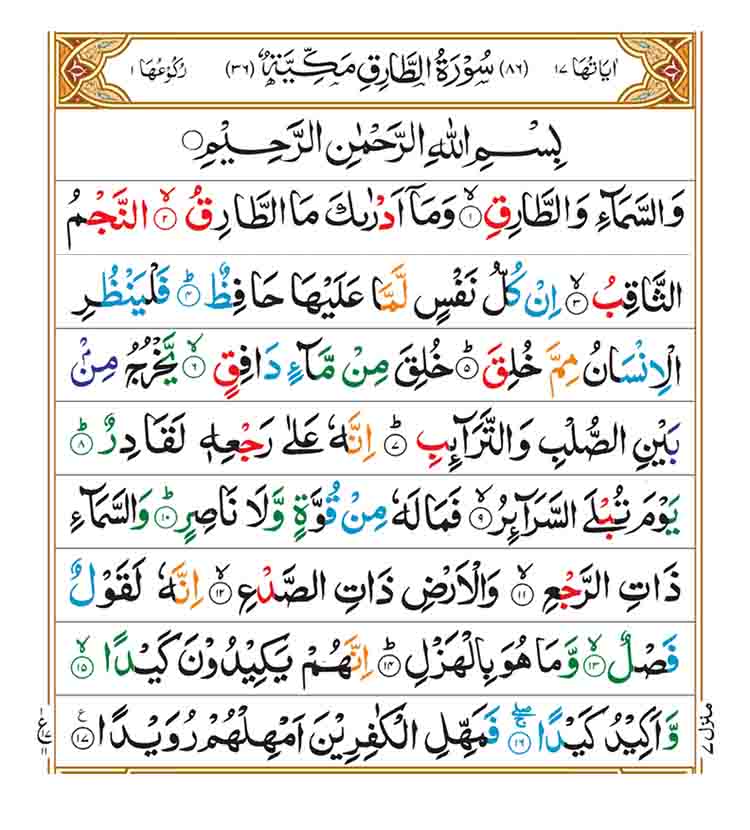 اٰیَاتُهَا ١٧ (٨٦) سُوْرَةُ الطَّارِقِ مَكِّيَّةٌ (٣٦) رُكُوْعُهَا ١
بِسْمِ اللّٰهِ الرَّحْمٰنِ الرَّحِيْمِ ○
وَالسَّمَآءِ وَالطَّارِقِ ۙ﴿١﴾ وَمَاۤ اَدْرٰىكَ مَا الطَّارِقُ ۙ﴿٢﴾ النَّجْمُ
الثَّاقِبُ ۙ﴿٣﴾ اِنْ كُلُّ نَفْسٍ لَّمَّا عَلَيْهَا حَافِظٌ ؕ﴿٤﴾ فَلْيَنْظُرِ
الْاِنْسَانُ مِمَّ خُلِقَ ؕ﴿٥﴾ خُلِقَ مِنْ مَّآءٍ دَافِقٍ ۙ﴿٦﴾ يَّخْرُجُ مِنْۢ
بَيْنِ الصُّلْبِ وَالتَّرَآئِبِ ؕ﴿٧﴾ اِنَّهٗ عَلٰى رَجْعِهٖ لَقَادِرٌ ؕ﴿٨﴾
يَوْمَ تُبْلَى السَّرَآئِرُ ۙ﴿٩﴾ فَمَا لَهٗ مِنْ قُوَّةٍ وَّلَا نَاصِرٍ ؕ﴿١٠﴾ وَالسَّمَآءِ
ذَاتِ الرَّجْعِ ۙ﴿١١﴾ وَالْاَرْضِ ذَاتِ الصَّدْعِ ۙ﴿١٢﴾ اِنَّهٗ لَقَوْلٌ
فَصْلٌ ۙ﴿١٣﴾ وَّمَا هُوَ بِالْهَزْلِ ؕ﴿١٤﴾ اِنَّهُمْ يَكِيْدُوْنَ كَيْدًا ۙ﴿١٥﴾
وَّاَكِيْدُ كَيْدًا ۚۖ﴿١٦﴾ فَمَهِّلِ الْكٰفِرِيْنَ اَمْهِلْهُمْ رُوَيْدًا ﴿١٧﴾ ع
منزل ٧
ع ١٧ ١١